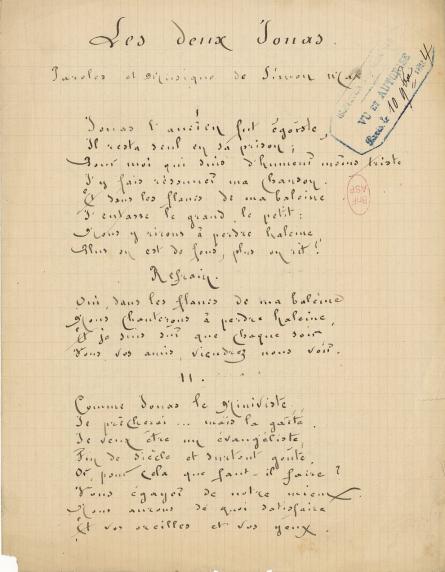 Les deux Jonas.
Paroles et Musique de Simon Max
VU et AUTORISÉ
Paris le 10
I
Jonas l'ancien fut égoïste,
Il resta seul en sa prison ;
Pour moi qui suis d'humeur moins triste
J'y fais résonner ma chanson.
Et dans les flancs de ma baleine
J'entasse le grand, le petit :
Nous y rirons à perdre haleine
Plus on est de fous, plus on rit !
BnF
ASP
Refrain.
Oui, dans les flancs de ma baleine
Nous chanterons à perdre haleine,
Et je suis sûr que chaque soir
Vous vos amis, viendrez nous voir.
II.
Comme Jonas le Ninivite
Je prêcherai ... mais la gaîté.
Je veux être un évangéliste,
Fin de siècle et surtout goûté,
Or, pour cela que faut-il faire ?
Vous égayer de notre mieux
Nous aurons de quoi satisfaire
Et vos oreilles et vos yeux.